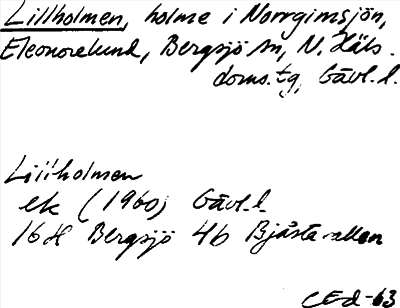 Lillholmen, holme i Norrgimsjön,
Eleonorelund, Bergsjö sn, N. Häls.
doms.tg, Gävl.l.
Lillholmen
ek (1960) Gävl.l.
16H Bergsjö 4b Bjåsta-vallen
CEd-63